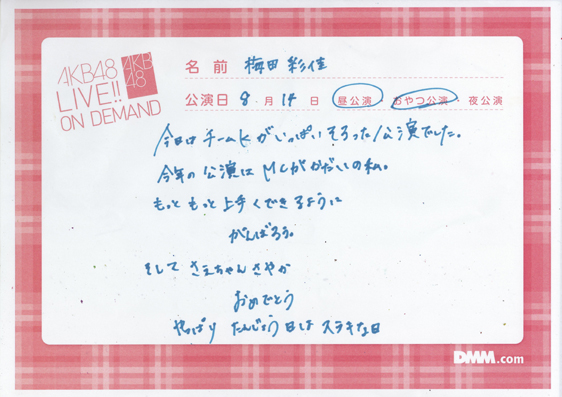 AKB48
LIVE!!
ON DEMAND
AKB
48
名前 梅田彩佳
公演日 8 月 14 日 昼公演・おやつ公演・夜公演
今日はチームKがいっぱいそろった公演でした。
今年の公演はMCがかだいの私。
もっともっと上手くできるように
がんばろう。
そして さえちゃんさやか
おめでとう
やっぱり たんじょう日は ステキな日
DMM.com